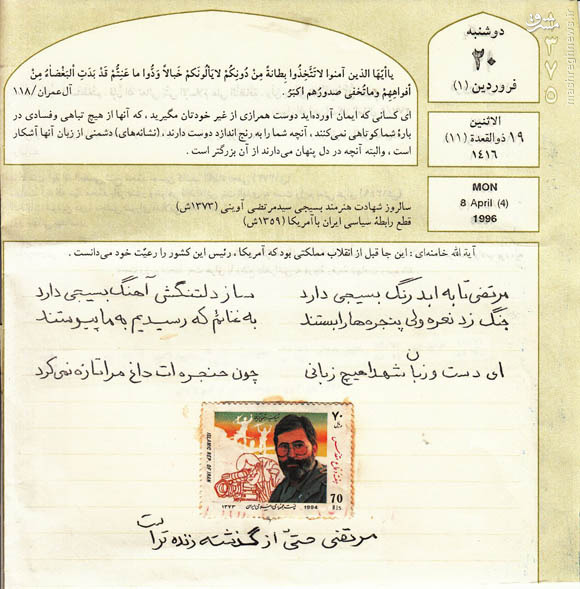 مشرق
mashreghnews.ir
۳۷۵
دوشنبه
۲۰
فروردین (۱)
الاثنین
۱۹ ذوالقعدة (۱۱)
۱۴۱۶
MON
8 April (4)
1996
یاأیّها الذین آمنوا لاتَتَّخِذُوا بِطانَةً مِنْ دُونِکُمْ لایَألُونَکُمْ خَبالاً وَدُّوا ما عَنِتُّمْ قَدْ بَدَتِ ٱلبَغْضَاءُ مِنْ
أفواهِهِمْ وَماتُخْفی صُدورُهم أکبَرُ. آل‌عمران/۱۱۸
ای کسانی که ایمان آورده‌اید دوست همرازی از غیر خودتان مگیرید، که آنها از هیچ تباهی وفسادی در
بارۀ شما کوتاهی نمی‌کنند، آنچه شما را به رنج اندازد دوست دارند، (نشانه‌های) دشمنی از زبان آنها آشکار
است، والبته آنچه در دل پنهان می‌دارند از آن بزرگتر است.
سالروز شهادت هنرمند بسیجی سیدمرتضی آوینی (۱۳۷۳ش)
قطع رابطۀ سیاسی ایران باآمریکا (۱۳۵۹ش)
آیة‌اللّه خامنه‌ای: این جا قبل از انقلاب مملکتی بود که آمریکا، رئیس این کشور را رعیّت خود می‌دانست.
مرتضی تا به ابد رنگ بسیجی دارد ساز دلتنگش آهنگ بسیجی دارد
جنگ زد نعره ولی پنجره‌ها را بستند به غنائم که رسیدیم به ما پیوستند
ای دست و زبان شهدا هیچ زبانی چون حنجره‌ات داغ مرا تازه نمی‌کرد
۷۰
ISLAMIC REP. OF IRAN
70
Rls
۱۳۷۳
پست جمهوری اسلامی ایران
1994
مرتضی حتّی از گذشته زنده تر است